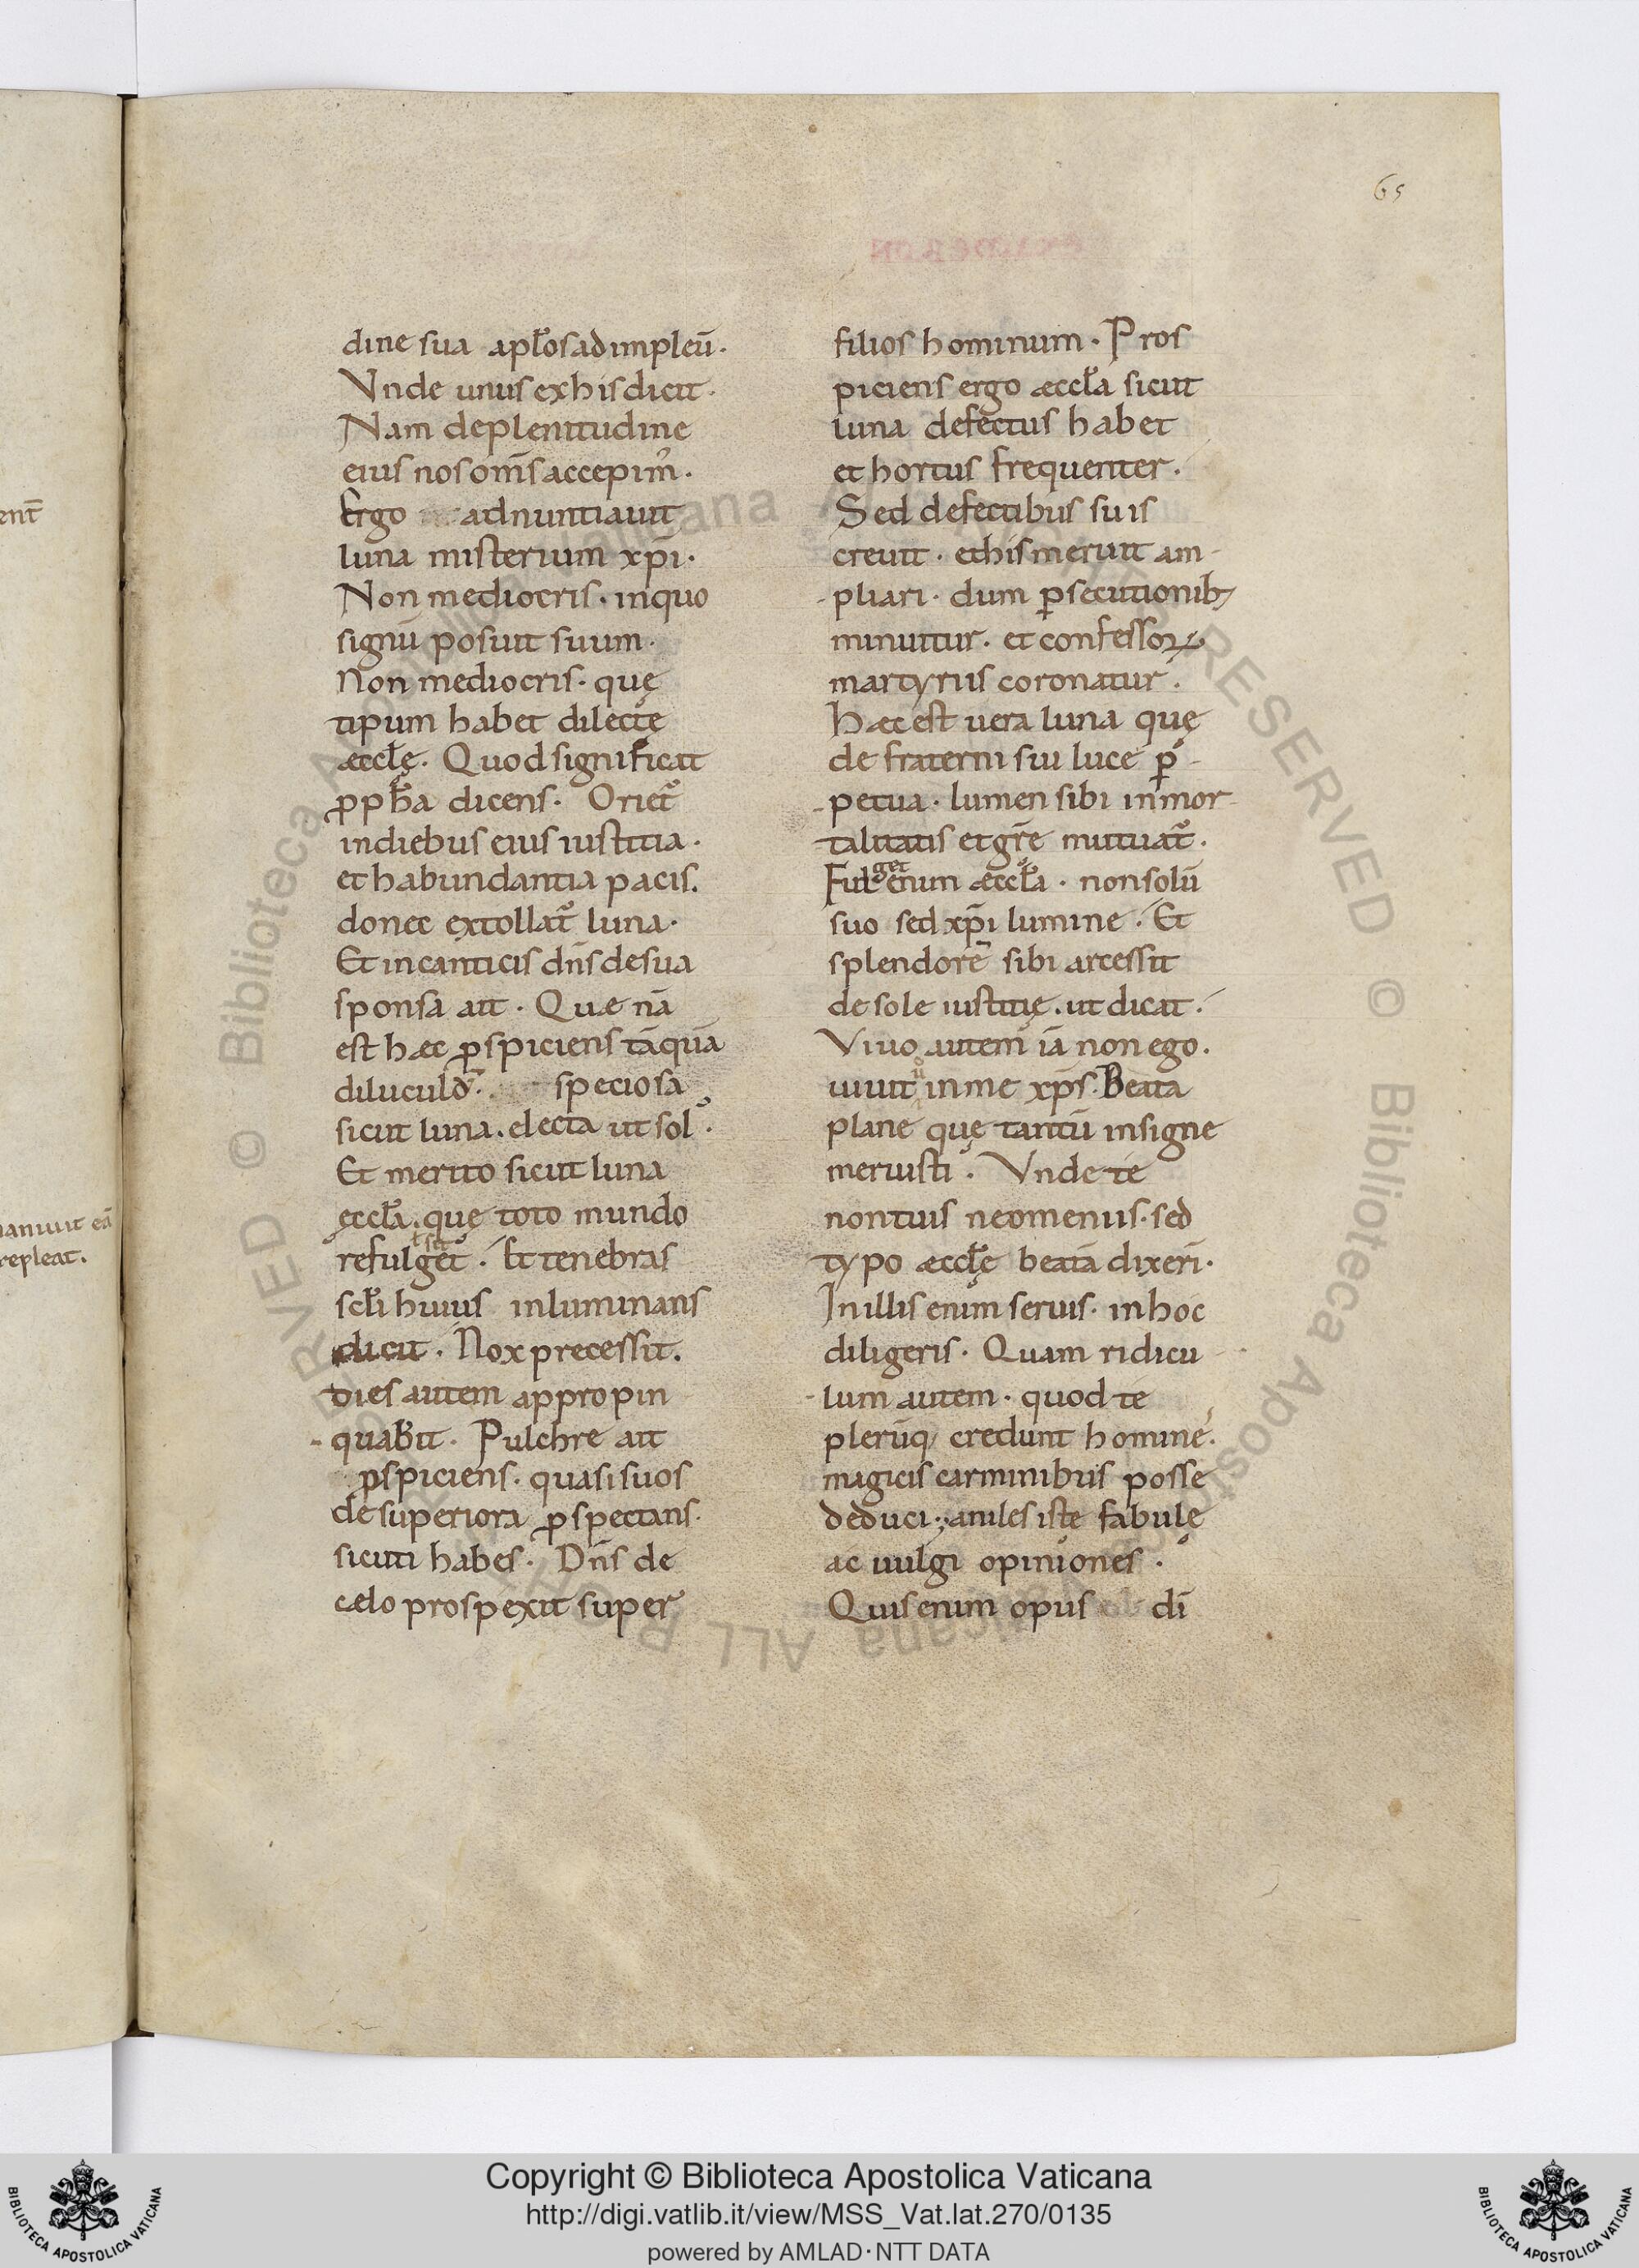 65
dine sua apłosadimpleū.
Vnde unus exhisdicit.
Nam deplenitudine
eius nosom̄saccepim᷒.
Ergo adnuntiauit
luna misterium xp̄i.
Non mediocris. inquo
signū posuit suum.
Non mediocris. quę
tipum habet dilectę
æccłę. Quod significat
ꝓpħa dicens. Oriet᷑
indiebus eius iustitia.
et habundantia pacis.
donec extollat᷑ luna.
Et incanticis dn̄s desua
sponsa ait. Quæ nā
est hæc ꝓspiciens tāquā
diluculū. speciosa
sicut luna. electa ut sol.
Et merito sicut luna
ęccła. quę toto mundo
ł sit
refulget. Et tenebras
scłi huius inluminans
dicit. Nox precessit.
dies autem appropin
quabit. Pulchre ait
ꝓspiciens. quasi suos
de superiora ꝓspectans.
sicuti habes. Dn̄s de
cælo prospexit super
filios hominum. Pros
piciens ergo æccła sicut
luna defectus habet
et hortus frequenter.
Sed defectibus suis
creuit. ethis meruit am-
pliari. dum ꝑsecutionibꝫ
minuitur. et confessoꝝ
martyriis coronatur.
Hæc est uera luna quę
de fraterni sui luce ꝑ-
petua. lumen sibi inmor-
talitatis et gr̄e mutuat᷑.
get
Ful enim æccła. nonsolū
suo sed xp̄i lumine. Et
splendorē sibi arcessit
de sole iustitię. ut dicat.
Viuo autem iā non ego.
uiuit inme xp̄s. Beata
plane quę tantū insigne
meruisti. Vnde te
nontuis neomeniis. sed
typo æccłę beatā dixeri.
Inillis enim seruis. inhoc
diligeris. Quam ridicu
lum autem. quod te
plerūq; credunt homine.
magicis carminibus posse
deduci; aniles iste fabulę
ac uulgi opiniones.
Quis enim opus dī
ent̄
manuit eā
repleat.
© Biblioteca Apostolica Vaticana ALL RIGHTS RESERVED
© Biblioteca Apostolica Vaticana ALL RIGHTS RESERVED
BIBLIOTECA APOSTOLICA VATICANA
Copyright © Biblioteca Apostolica Vaticana
http://digi.vatlib.it/view/MSS_Vat.lat.270/0135
powered by AMLAD·NTT DATA
BIBLIOTECA APOSTOLICA VATICANA